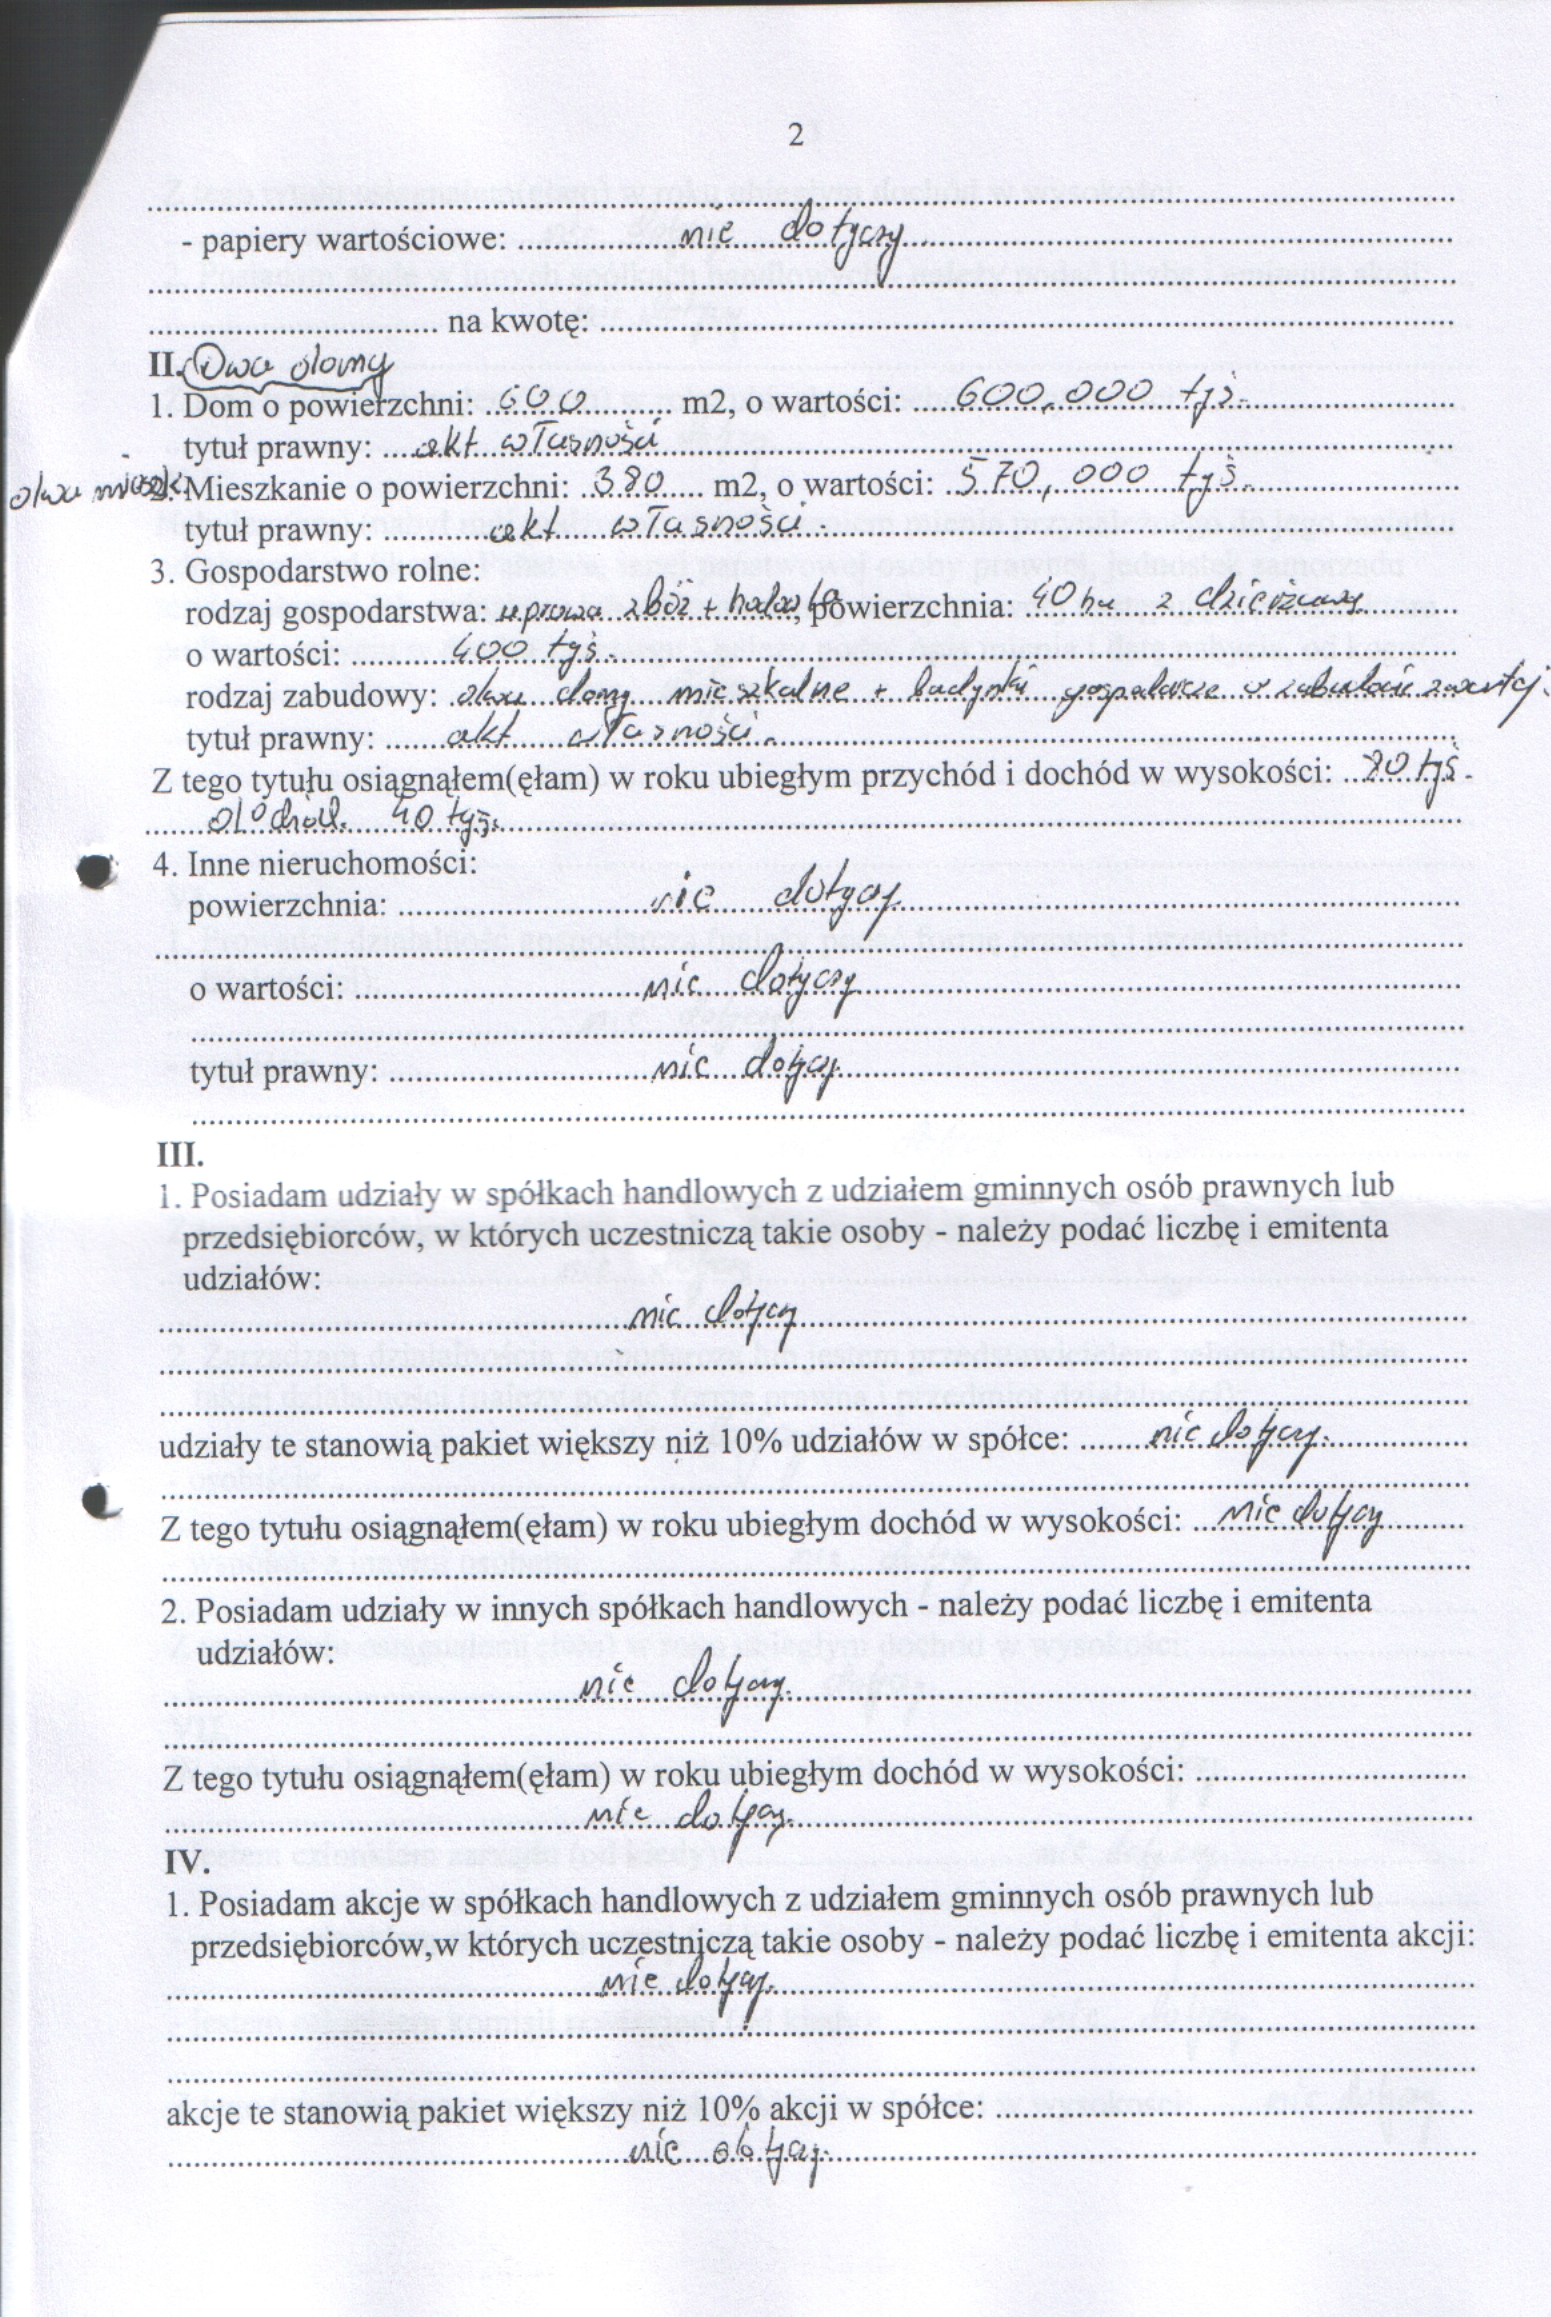 2
- papiery wartościowe: nie dotyczy
na kwotę:
II. Dwa domy
1. Dom o powierzchni: 600 m2, o wartości: 600,000 tyś.
tytuł prawny: akt własności
dwa mieszk. 2. Mieszkanie o powierzchni: 380 m2, o wartości: 570,000 tyś.
tytuł prawny: akt własności.
3. Gospodarstwo rolne:
rodzaj gospodarstwa: uprawa zbóż + , powierzchnia: 40 ha z dzierżawą
o wartości: 400 tyś.
rodzaj zabudowy: dwa domy mieszkalne + budynki gospodarcze w zabudowie zwartej.
tytuł prawny: akt własności.
Z tego tytułu osiągnąłem(ęłam) w roku ubiegłym przychód i dochód w wysokości: tyś.
dochód. 40 tyś.
4. Inne nieruchomości:
powierzchnia: nie dotyczy
o wartości: nie dotyczy
tytuł prawny: nie dotyczy
III.
1. Posiadam udziały w spółkach handlowych z udziałem gminnych osób prawnych lub
przedsiębiorców, w których uczestniczą takie osoby - należy podać liczbę i emitenta
udziałów:
nie dotyczy
udziały te stanowią pakiet większy niż 10% udziałów w spółce: nie dotyczy.
Z tego tytułu osiągnąłem(ęłam) w roku ubiegłym dochód w wysokości: nie dotyczy
2. Posiadam udziały w innych spółkach handlowych - należy podać liczbę i emitenta
udziałów:
nie dotyczy.
Z tego tytułu osiągnąłem(ęłam) w roku ubiegłym dochód w wysokości:
nie dotyczy.
IV.
1. Posiadam akcje w spółkach handlowych z udziałem gminnych osób prawnych lub
przedsiębiorców,w których uczestniczą takie osoby - należy podać liczbę i emitenta akcji:
nie dotyczy.
akcje te stanowią pakiet większy niż 10% akcji w spółce:
nie dotyczy.